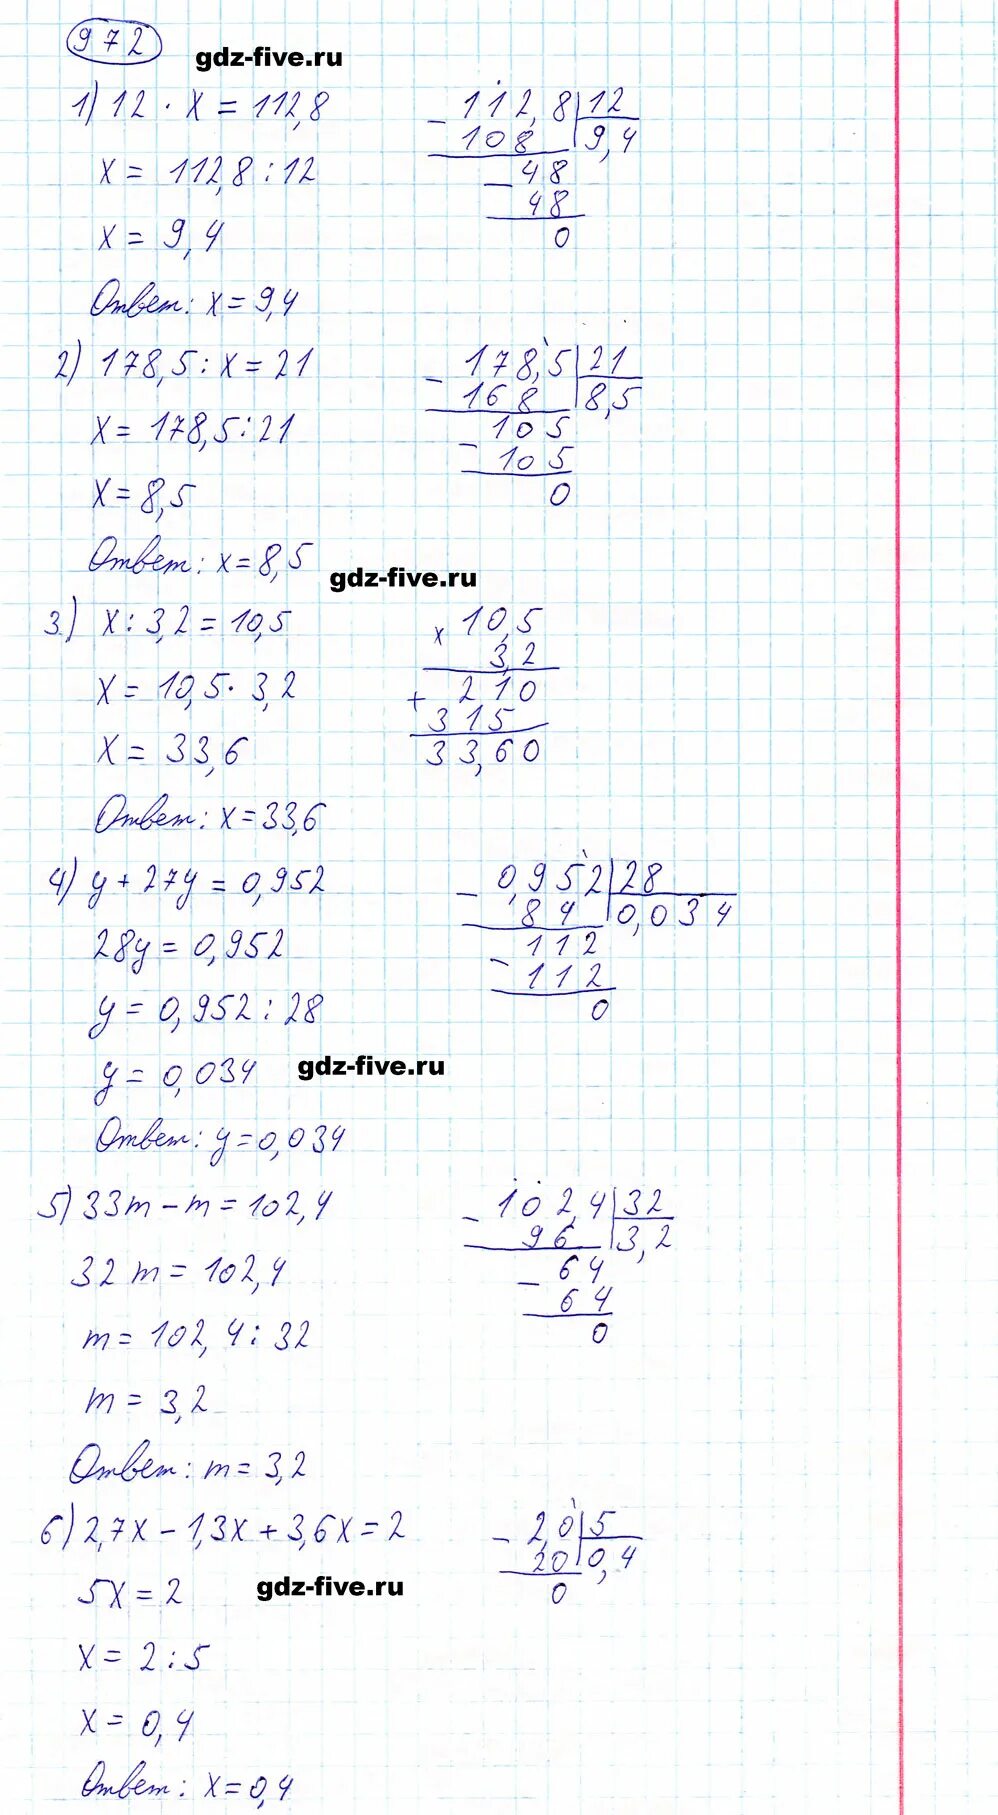 972
gdz-five.ru
1) 12 · x = 112,8
x = 112,8 : 12
x = 9,4
Ответ: x = 9,4
- 112,8 | 12
108 | 9,4
- 48
48
0
2) 178,5 : x = 21
x = 178,5 : 21
x = 8,5
Ответ: x = 8,5
- 178,5 | 21
168 | 8,5
- 105
105
0
gdz-five.ru
3) x : 3,2 = 10,5
x = 10,5 · 3,2
x = 33,6
Ответ: x = 33,6
x 10,5
3,2
+ 210
315
33,60
4) y + 27y = 0,952
28y = 0,952
y = 0,952 : 28
y = 0,034
Ответ: y = 0,034
- 0,952 | 28
84 | 0,034
- 112
112
0
gdz-five.ru
5) 33m - m = 102,4
32m = 102,4
m = 102,4 : 32
m = 3,2
Ответ: m = 3,2
- 102,4 | 32
96 | 3,2
- 64
64
0
6) 2,7x - 1,3x + 3,6x = 2
5x = 2
x = 2 : 5
x = 0,4
Ответ: x = 0,4
- 2,0 | 5
20 | 0,4
0
gdz-five.ru